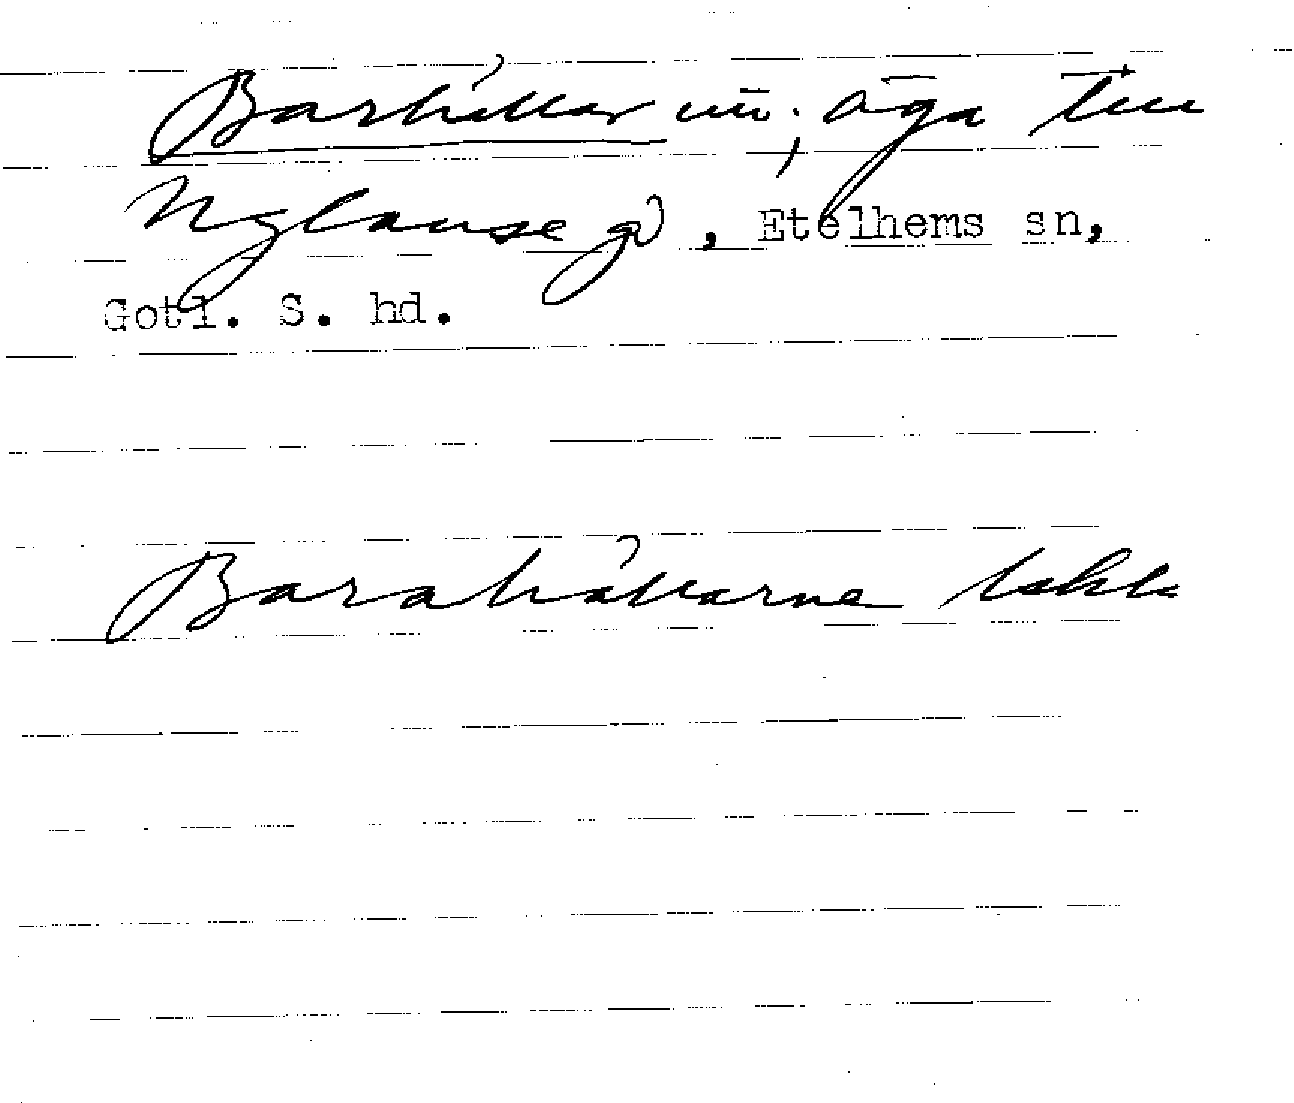 Barhällar uti; äga till
Nyglause gd, Etelhems sn,
Gotl. S. hd.
Barahällarne